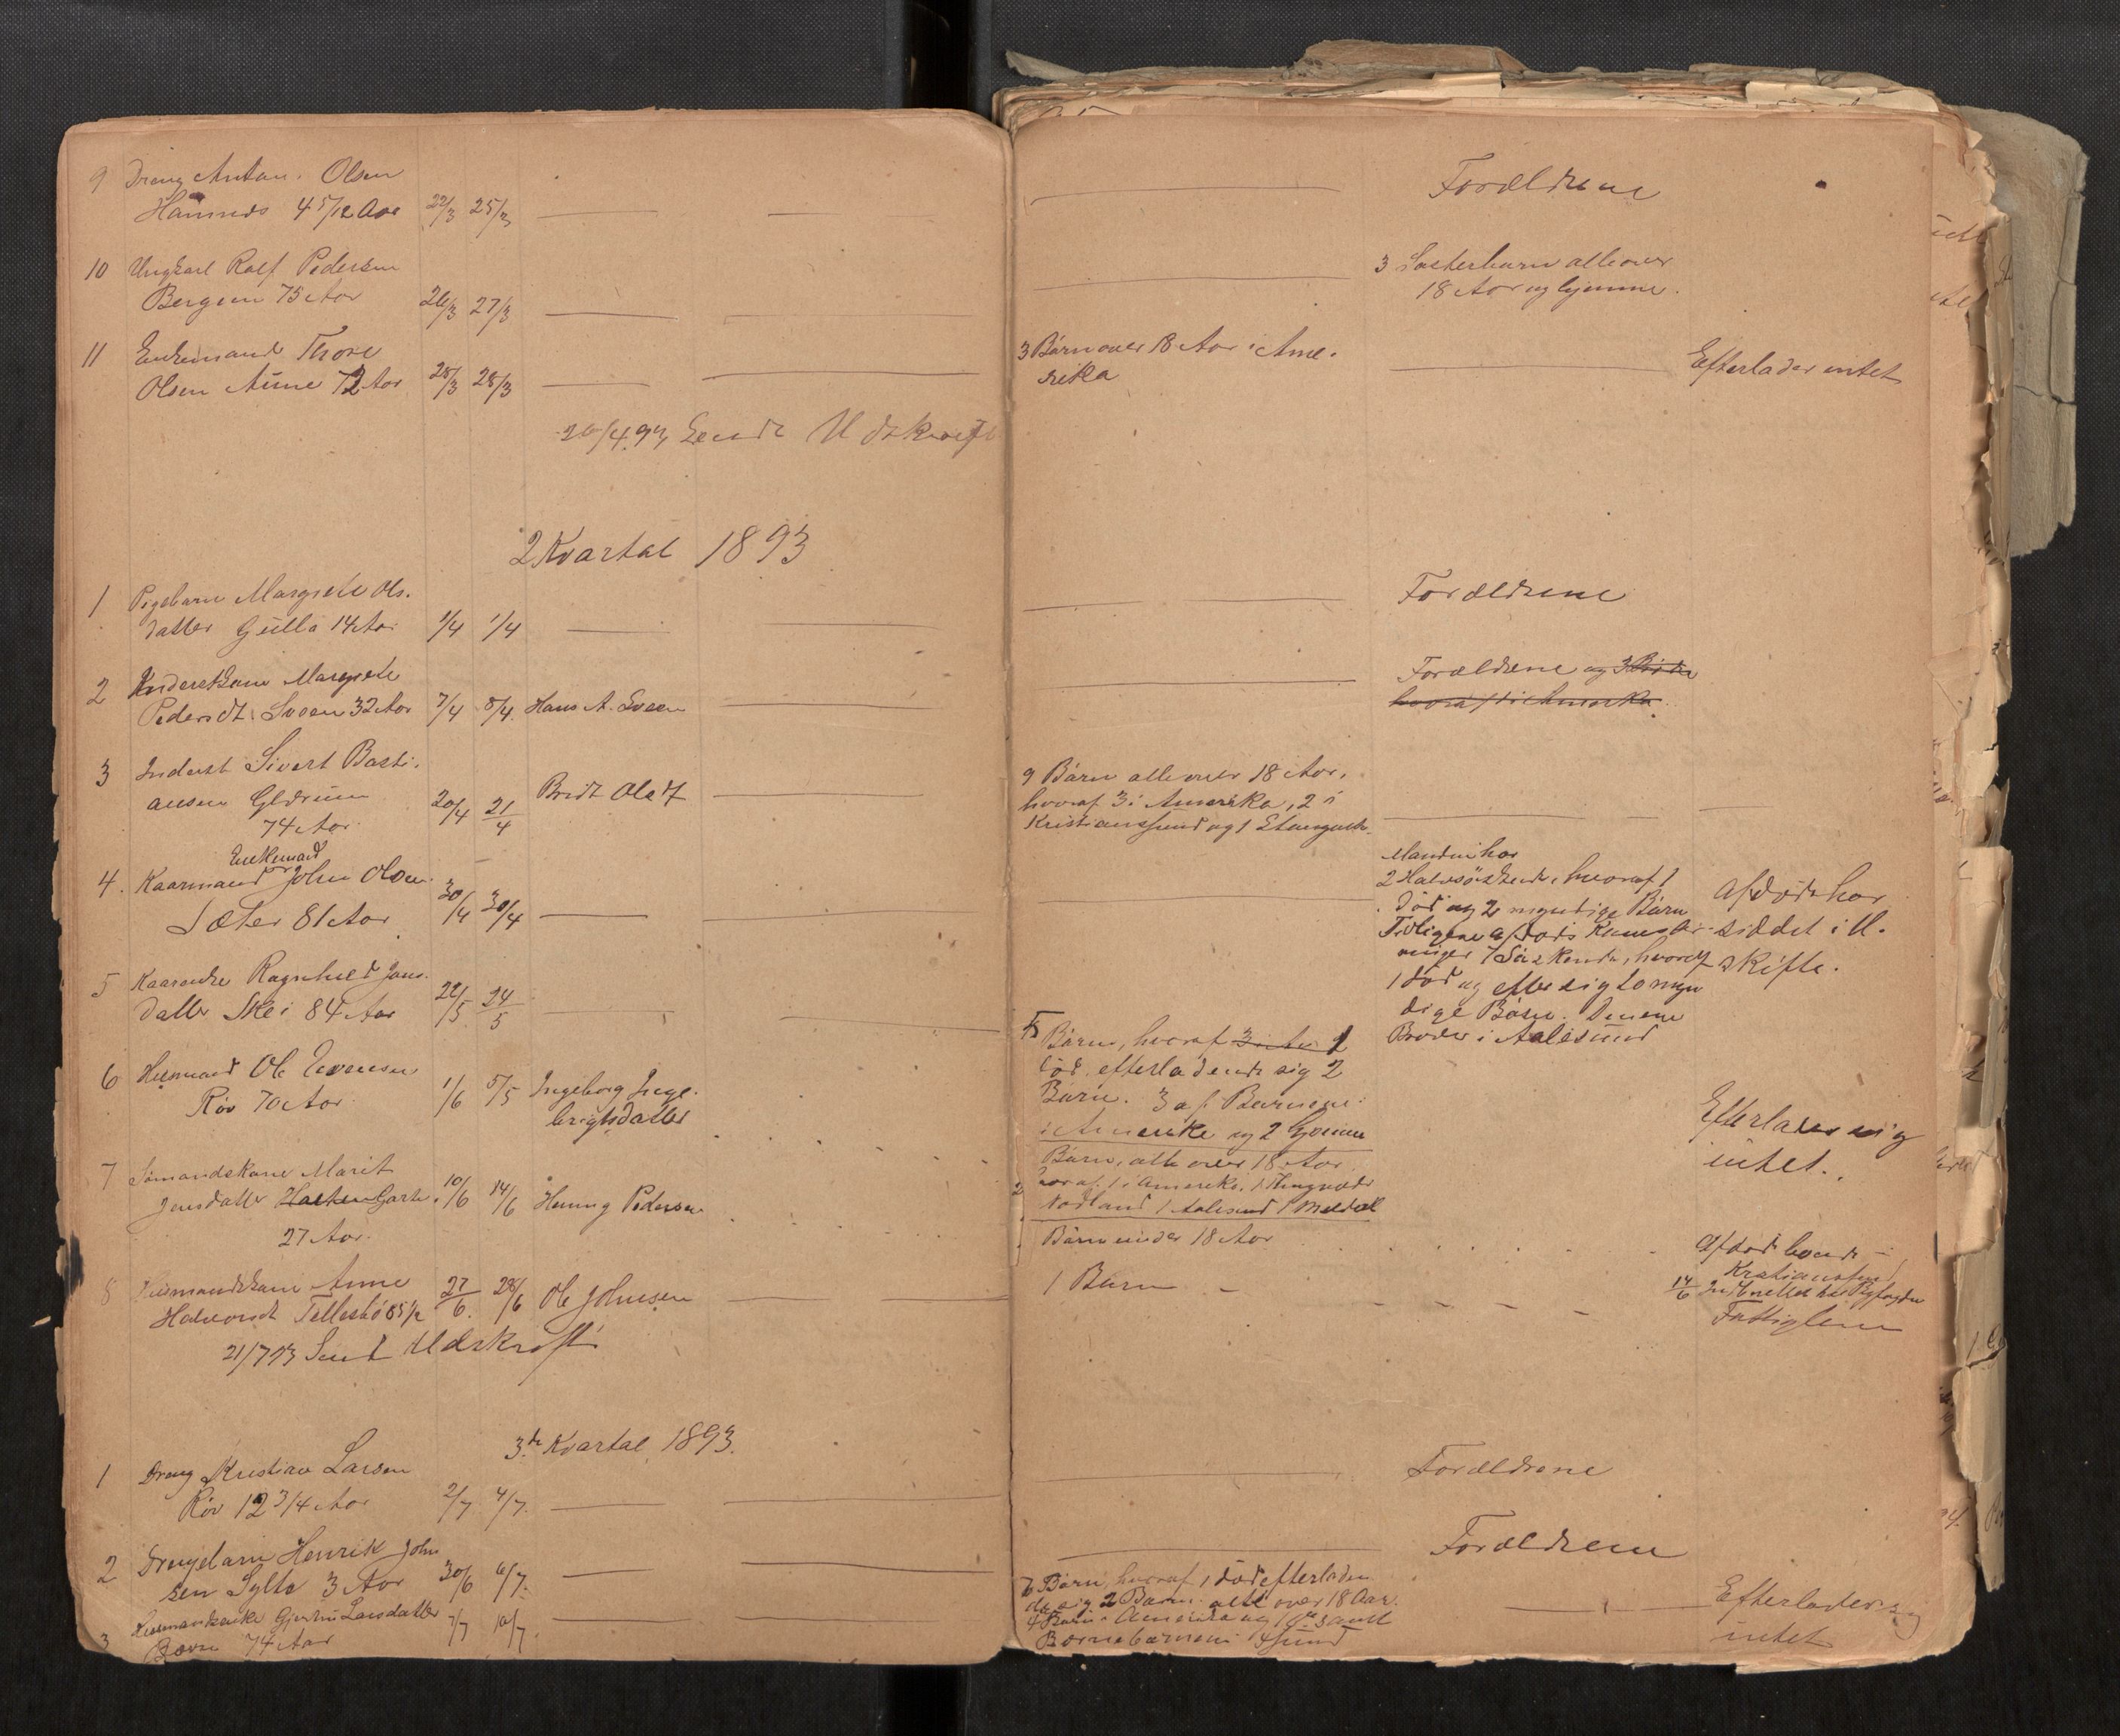 9 Dreng Anton Olsen
Hamnes 4 5/12 Aar 22/3 25/3
Forældrene
10 Ungkarl Rolf Pedersen
Bergem 75 Aar 26/3 27/3
3 Søsterbarn alle over
18 Aar og hjemme.
11 Enkemand Thore
Olsen Aune 72 Aar 25/3 28/3
3 Børn over 18 Aar i Ame-
rika
Efterlader intet
20/4.93 Sendt Udskrift
2 Kvartal 1893
1 Pigebarn Margrete Ols.
datter Gulla 14 Aar 1/4 1/4
Forældrene
2 Inderstkone Margrete
Pedersdt. Sveen 32 Aar 7/4 8/4. Hans A. Sveen
Forældrene og 3 Børn
hvoraf 1 i Amerika.
3 Inderst Sivert Basti-
ansen Glærum
74 Aar 20/4 21/4
Bredt Olsdt
9 Børn alle over 18 Aar,
hvoraf 3 i Amerika, 2 i
Kristianssund og 1 Stangvik.
Enkemand
4. Kaarmand John Olsen
Sæter 81 Aar 30/4 30/4
Manden har
2 Halvsøskende, hvoraf 1
død og 2 myndige Børn
Tidligere afdøds Kones Ar-
vinger 7 Søskende, hvoraf
1 død og efter sig to myn
dige Børn. Denene
Broder i Aalesund
Afdøde har
siddet i U.
skifte.
5 Kaarenke Ragnhild Jons.
datter Skei 84 Aar 22/5 24/5
5 Børn, hvoraf 3 i Am 1
død, efterladende sig 2
Børn. 3 af Børnene
i Amerika og 2 hjemme
6 Husmand Ole Evensen
Röv 70 Aar 1/6 5/5 Ingeborg Inge-
brigtsdatter
Børn, alle over 18 Aar
hvoraf 1 i Amerika, 1
Nordland 1 Aalesund 1 Meldal
Efterlader sig
intet.
7 Sømandskone Marit
Jensdatter Hacken Garte. 10/6 14/6 Henning Pedersen
27 Aar.
Børn under 18 Aar
Afdød boende i
Kristianssund
8 Husmandskone Anne
Halvorsdt. Tellesbø 85 1/2 27/6. 28/6 Ole Johnsen
1 Barn
14/6
Fattiglem
21/7 93 Sendt Udskrift
3.die Kvartal 1893.
1 Dreng Kristian Larsen
Röv 12 3/4 Aar 2/7 4/7.
Forældrene
2 Drengebarn Henrik John
sen Sylte 3 Aar 30/6 6/7.
Forældrene
3 Husmandsenke Gjertru Larsdatter
Bævre 74 Aar 7/7 10/7.
7 Børn, hvoraf 1 død efterladen
de sig 2 Børn. alle over 18 Aar.
4 Børn i Amerika og 1 do samt
Børnebørnene i Xsund
Efterlader sig
intet